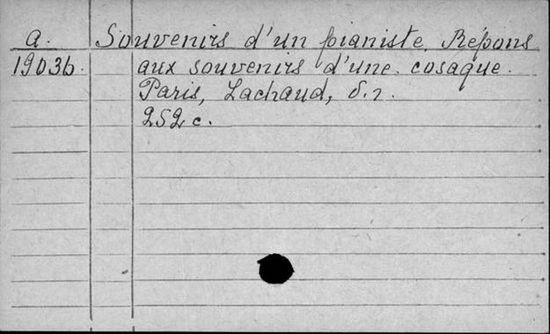 a. Souvenirs d'un pianiste. Répons
19036. aux souvenirs d'une cosaque.
Paris, Lachaud, s.a.
252 c.